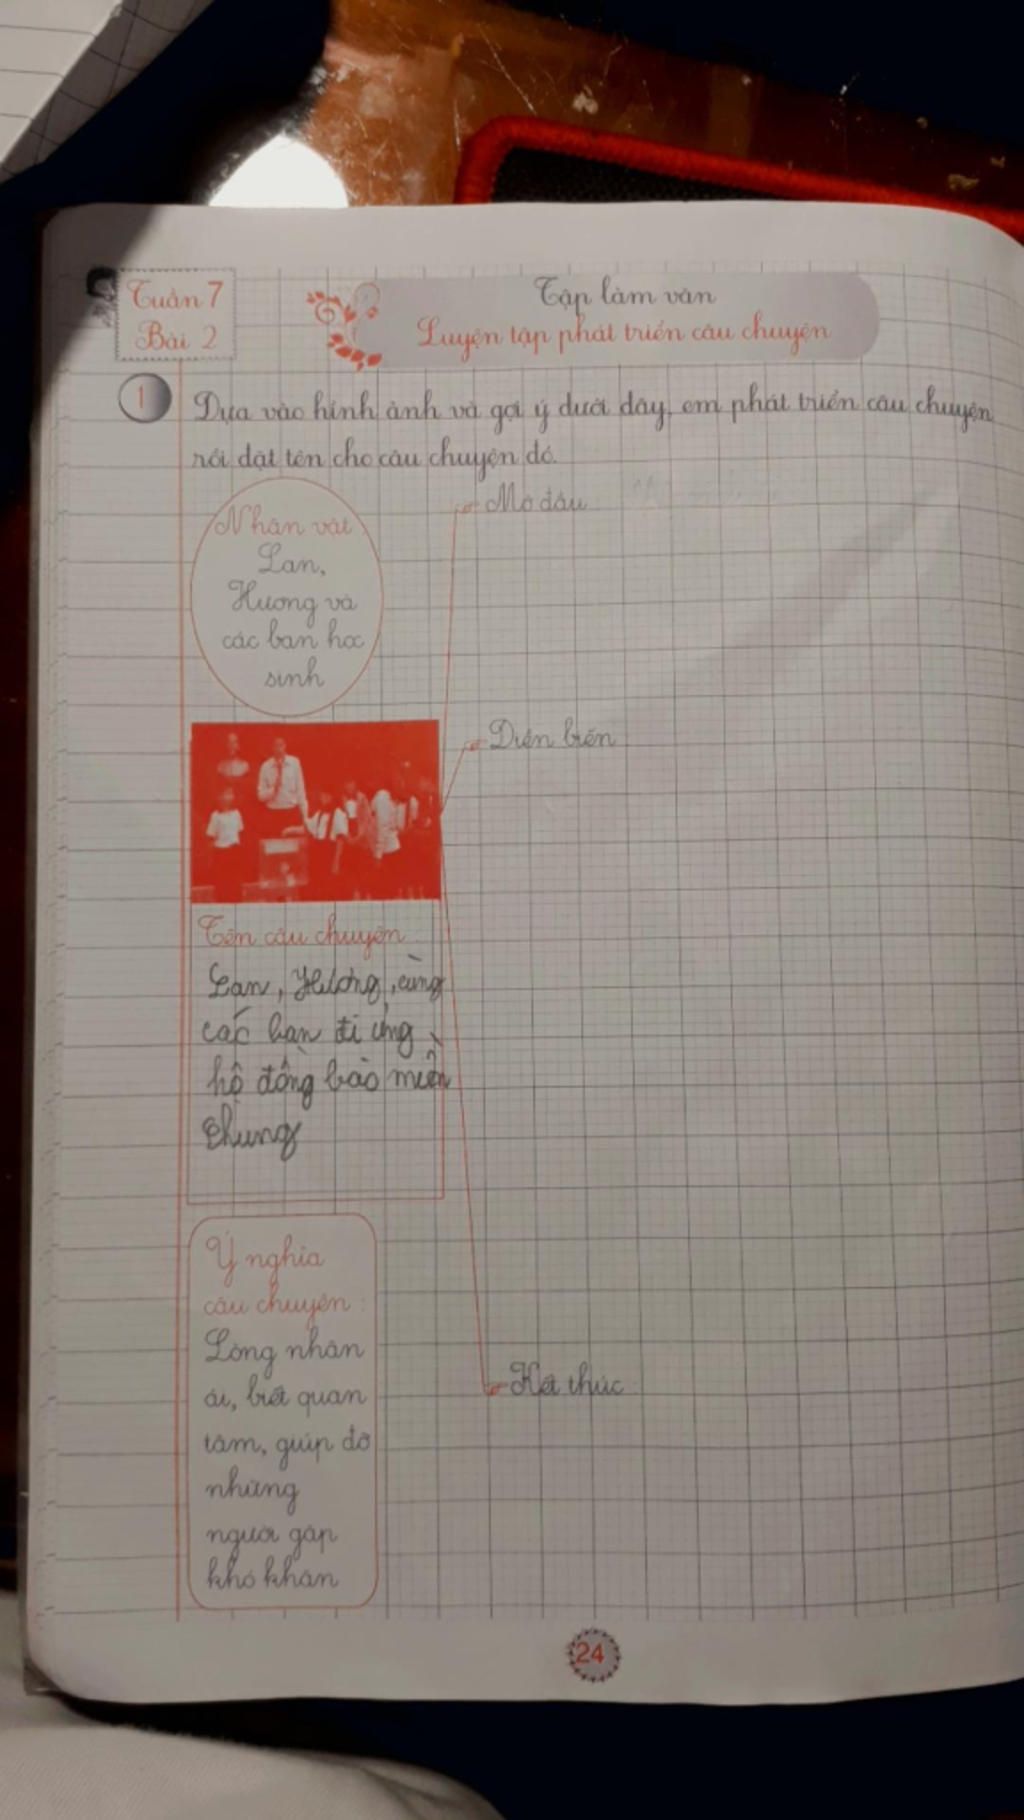 Tuần 7
Bài 2
Tập làm văn
Luyện tập phát triển câu chuyện
1
Dựa vào hình ảnh và gợi ý dưới đây, em phát triển câu chuyện
rồi đặt tên cho câu chuyện đó.
Nhân vật :
Lan,
Hương và
các bạn học
sinh
Mở đầu
Diễn biến
Tên câu chuyện :
Lan, Hương, cùng
các bạn đi ủng
hộ đồng bào miền
chung
Ý nghĩa
câu chuyện :
Lòng nhân
ái, biết quan
tâm, giúp đỡ
những
người gặp
khó khăn
Kết thúc
24